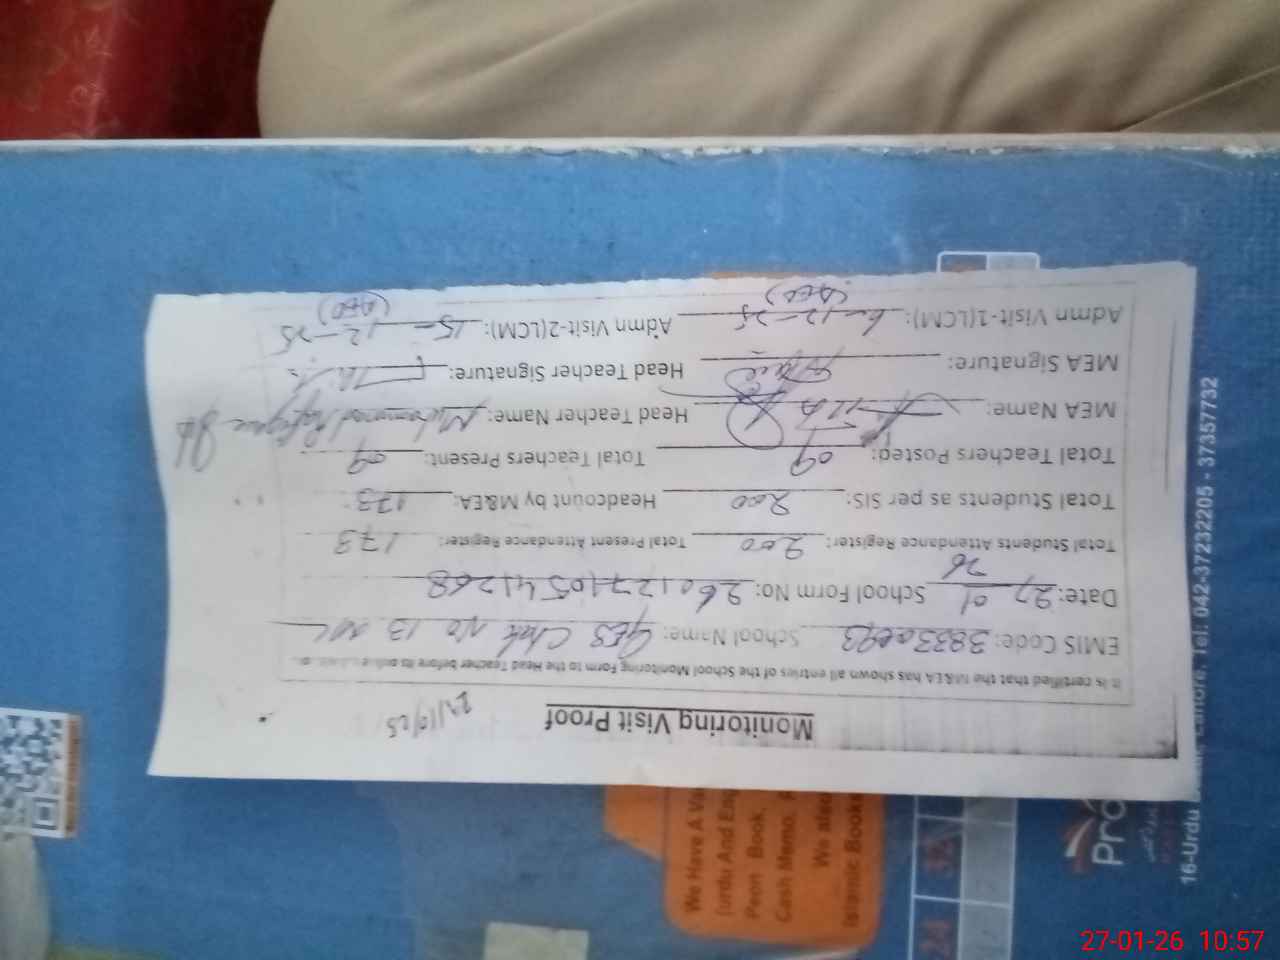 Monitoring Visit Proof
It is certified that the M&EA has shown all entries of the School Monitoring Form to the Head Teacher before its
EMIS Code: School Name: GES Chak No 13
Date: 27/01/26 School Form No: 260127105441268
Total Students Attendance Register: 200 Total Present Attendance Register: 173
Total Students as per SIS: 200 Headcount by M&EA: 173
Total Teachers Posted: 09 Total Teachers Present: 09
MEA Name: Head Teacher Name: Muhammad
MEA Signature: Head Teacher Signature:
Admn Visit-1(LCM): 6-12-25 (AEO) Admn Visit-2(LCM): 15-12-25 (AEO)
We Have A
(urdu And Eng
Peon Book,
Cash Memo,
We also
Islamic Book
24
32
Pro
16-Urdu Lahore. Tel: 042-37232205 - 37357732
27-01-26 10:57